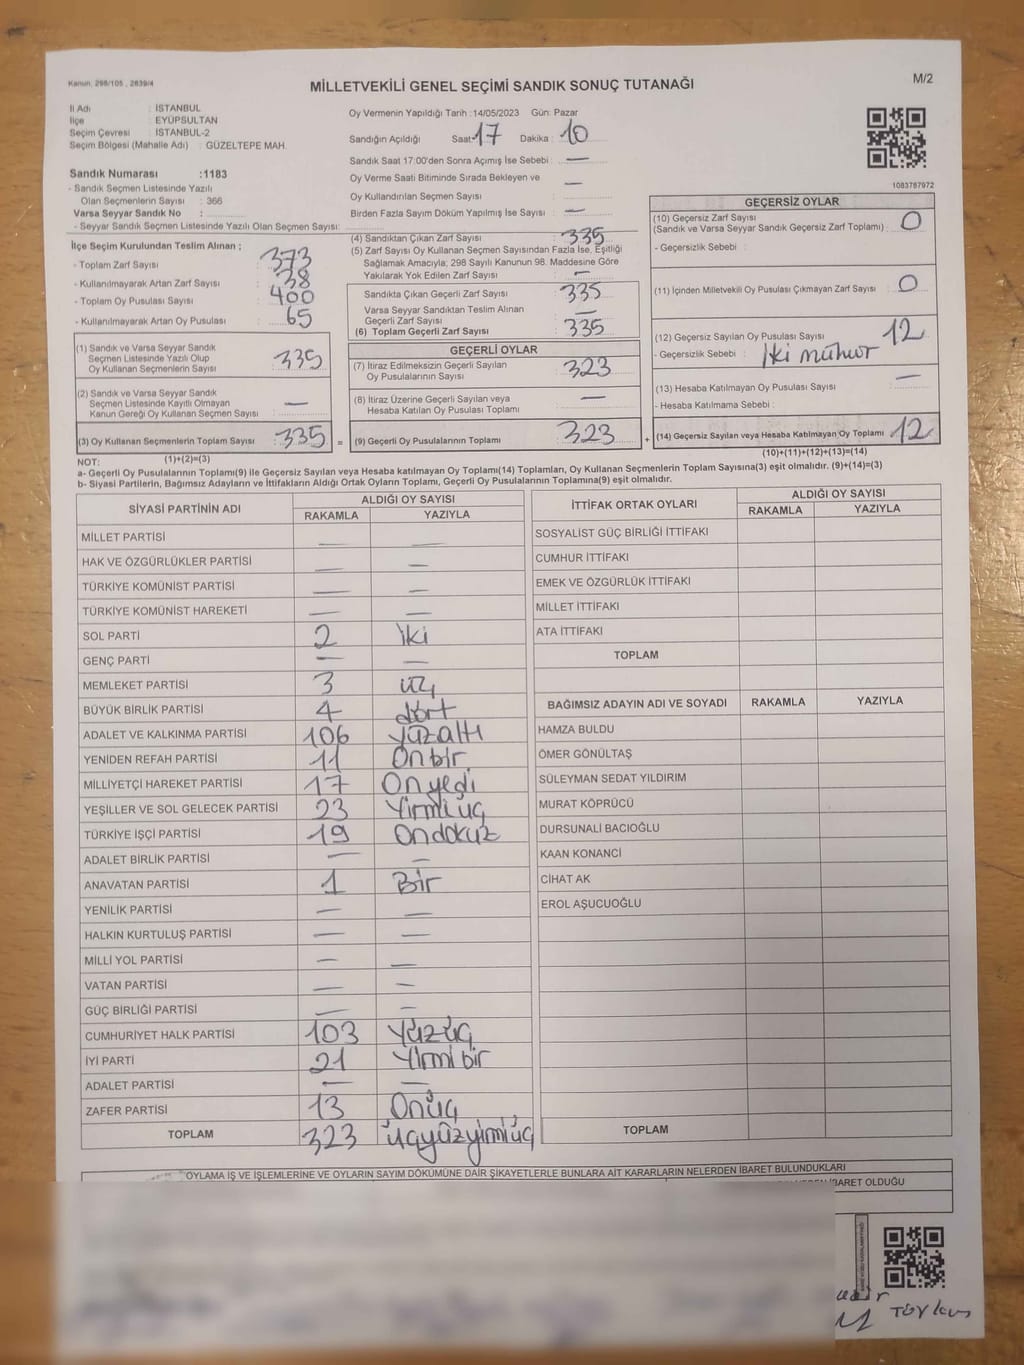 Kanun: 298/105 , 2839/4
MİLLETVEKİLİ GENEL SEÇİMİ SANDIK SONUÇ TUTANAĞI
M/2
İl Adı : İSTANBUL
İlçe : EYÜPSULTAN
Seçim Çevresi : İSTANBUL-2
Seçim Bölgesi (Mahalle Adı) : GÜZELTEPE MAH.
Sandık Numarası :1183
- Sandık Seçmen Listesinde Yazılı
Olan Seçmenlerin Sayısı : 366
Varsa Seyyar Sandık No :
- Seyyar Sandık Seçmen Listesinde Yazılı Olan Seçmen Sayısı:
Oy Vermenin Yapıldığı Tarih :14/05/2023 Gün: Pazar
Sandığın Açıldığı Saat 17 Dakika : 10
Sandık Saat 17:00'den Sonra Açımış İse Sebebi : —
Oy Verme Saati Bitiminde Sırada Bekleyen ve
Oy Kullandırılan Seçmen Sayısı : —
Birden Fazla Sayım Döküm Yapılmış İse Sayısı : —
1083787972
İlçe Seçim Kurulundan Teslim Alınan ;
- Toplam Zarf Sayısı : 373
- Kullanılmayarak Artan Zarf Sayısı : 38
- Toplam Oy Pusulası Sayısı : 400
- Kullanılmayarak Artan Oy Pusulası : 65
(1) Sandık ve Varsa Seyyar Sandık
Seçmen Listesinde Yazılı Olup
Oy Kullanan Seçmenlerin Sayısı : 335
(2) Sandık ve Varsa Seyyar Sandık
Seçmen Listesinde Kayıtlı Olmayan
Kanun Gereği Oy Kullanan Seçmen Sayısı : —
(3) Oy Kullanan Seçmenlerin Toplam Sayısı : 335
(1)+(2)=(3)
(4) Sandıktan Çıkan Zarf Sayısı : 335
(5) Zarf Sayısı Oy Kullanan Seçmen Sayısından Fazla İse, Eşitliği
Sağlamak Amacıyla; 298 Sayılı Kanunun 98. Maddesine Göre
Yakılarak Yok Edilen Zarf Sayısı : —
Sandıkta Çıkan Geçerli Zarf Sayısı : 335
Varsa Seyyar Sandıktan Teslim Alınan
Geçerli Zarf Sayısı : —
(6) Toplam Geçerli Zarf Sayısı : 335
GEÇERLİ OYLAR
(7) İtiraz Edilmeksizin Geçerli Sayılan
Oy Pusulalarının Sayısı : 323
(8) İtiraz Üzerine Geçerli Sayılan veya
Hesaba Katılan Oy Pusulası Toplamı : —
= (9) Geçerli Oy Pusulalarının Toplamı : 323
GEÇERSİZ OYLAR
(10) Geçersiz Zarf Sayısı
(Sandık ve Varsa Seyyar Sandık Geçersiz Zarf Toplamı) : 0
- Geçersizlik Sebebi :
(11) İçinden Milletvekili Oy Pusulası Çıkmayan Zarf Sayısı : 0
(12) Geçersiz Sayılan Oy Pusulası Sayısı : 12
- Geçersizlik Sebebi : İki mühür
(13) Hesaba Katılmayan Oy Pusulası Sayısı : —
- Hesaba Katılmama Sebebi :
+ (14) Geçersiz Sayılan veya Hesaba Katılmayan Oy Toplamı : 12
(10)+(11)+(12)+(13)=(14)
NOT:
a- Geçerli Oy Pusulalarının Toplamı(9) ile Geçersiz Sayılan veya Hesaba katılmayan Oy Toplamı(14) Toplamları, Oy Kullanan Seçmenlerin Toplam Sayısına(3) eşit olmalıdır. (9)+(14)=(3)
b- Siyasi Partilerin, Bağımsız Adayların ve İttifakların Aldığı Ortak Oyların Toplamı, Geçerli Oy Pusulalarının Toplamına(9) eşit olmalıdır.
SİYASİ PARTİNİN ADI ALDIĞI OY SAYISI
RAKAMLA YAZIYLA
MİLLET PARTİSİ — —
HAK VE ÖZGÜRLÜKLER PARTİSİ — —
TÜRKİYE KOMÜNİST PARTİSİ — —
TÜRKİYE KOMÜNİST HAREKETİ — —
SOL PARTİ 2 iki
GENÇ PARTİ — —
MEMLEKET PARTİSİ 3 üç
BÜYÜK BİRLİK PARTİSİ 4 dört
ADALET VE KALKINMA PARTİSİ 106 yüzaltı
YENİDEN REFAH PARTİSİ 11 Onbir
MİLLİYETÇİ HAREKET PARTİSİ 17 Onyedi
YEŞİLLER VE SOL GELECEK PARTİSİ 23 Yirmiüç
TÜRKİYE İŞÇİ PARTİSİ 19 Ondokuz
ADALET BİRLİK PARTİSİ — —
ANAVATAN PARTİSİ 1 Bir
YENİLİK PARTİSİ — —
HALKIN KURTULUŞ PARTİSİ — —
MİLLİ YOL PARTİSİ — —
VATAN PARTİSİ — —
GÜÇ BİRLİĞİ PARTİSİ — —
CUMHURİYET HALK PARTİSİ 103 Yüzüç
İYİ PARTİ 21 Yirmibir
ADALET PARTİSİ — —
ZAFER PARTİSİ 13 Onüç
TOPLAM 323 Üçyüzyirmiüç
İTTİFAK ORTAK OYLARI ALDIĞI OY SAYISI
RAKAMLA YAZIYLA
SOSYALİST GÜÇ BİRLİĞİ İTTİFAKI
CUMHUR İTTİFAKI
EMEK VE ÖZGÜRLÜK İTTİFAKI
MİLLET İTTİFAKI
ATA İTTİFAKI
TOPLAM
BAĞIMSIZ ADAYIN ADI VE SOYADI RAKAMLA YAZIYLA
HAMZA BULDU
ÖMER GÖNÜLTAŞ
SÜLEYMAN SEDAT YILDIRIM
MURAT KÖPRÜCÜ
DURSUNALİ BACIOĞLU
KAAN KONANCİ
CİHAT AK
EROL AŞUCUOĞLU
TOPLAM
OYLAMA İŞ VE İŞLEMLERİNE VE OYLARIN SAYIM DÖKÜMÜNE DAİR ŞİKAYETLERLE BUNLARA AİT KARARLARIN NELERDEN İBARET BULUNDUKLARI
İBARET OLDUĞU